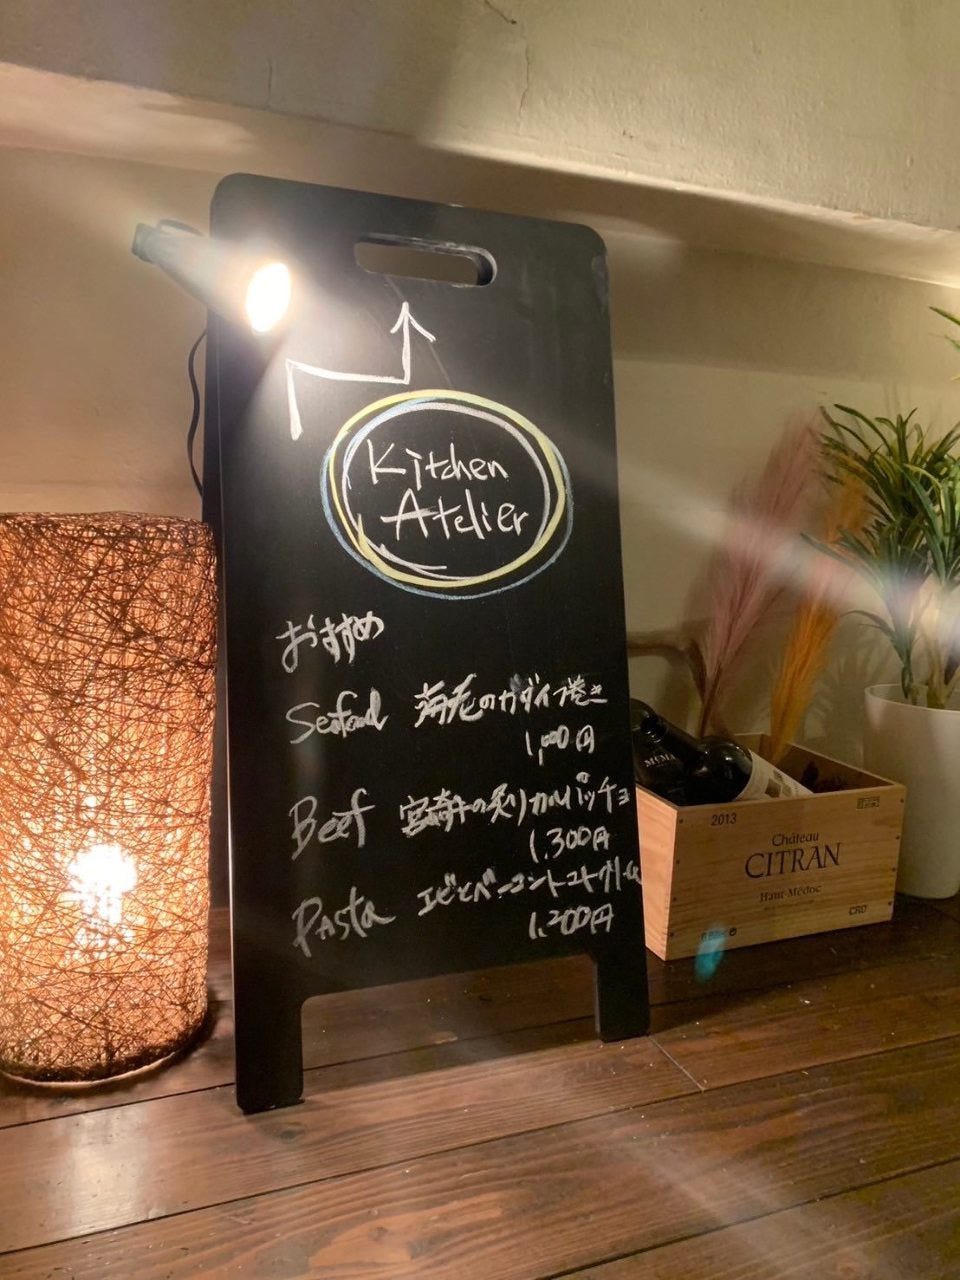 Kitchen
Atelier
おすすめ
Seafood 海老のカダイフ巻き
1,000円
Beef 宮崎牛の炙りカルパッチョ
1,300円
Pasta エビとベーコントマトクリーム
1,200円
2013
Château
CITRAN
Haut-Médoc
CRD